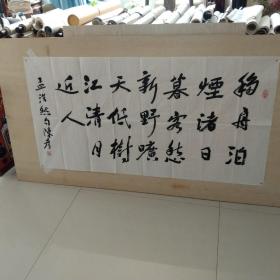 移舟泊
煙渚日
暮客愁
新野曠
天低樹
江清月
近人
孟浩然句陳